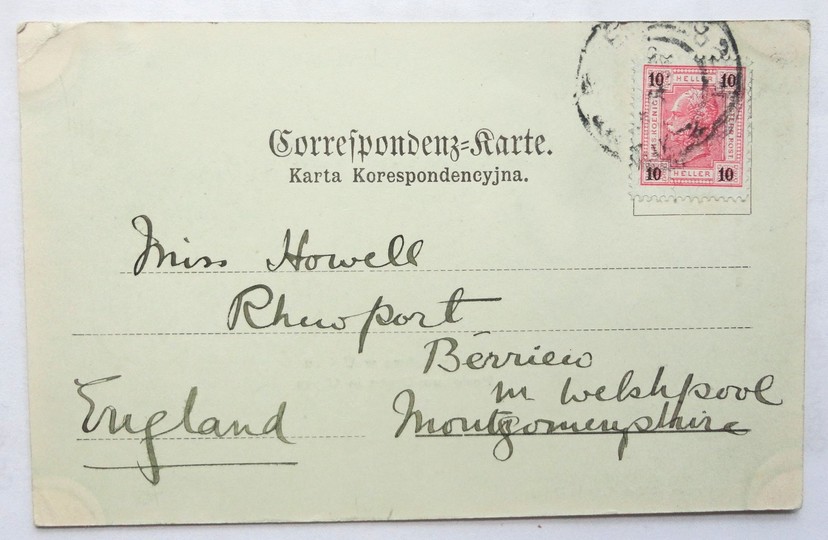 Correspondenz-Karte.
Karta Korespondencyjna.
10 HELLER 10
10 HELLER 10
Miss Howell
Rhiwport
Berriew
nr Welshpool
Montgomeryshire
England